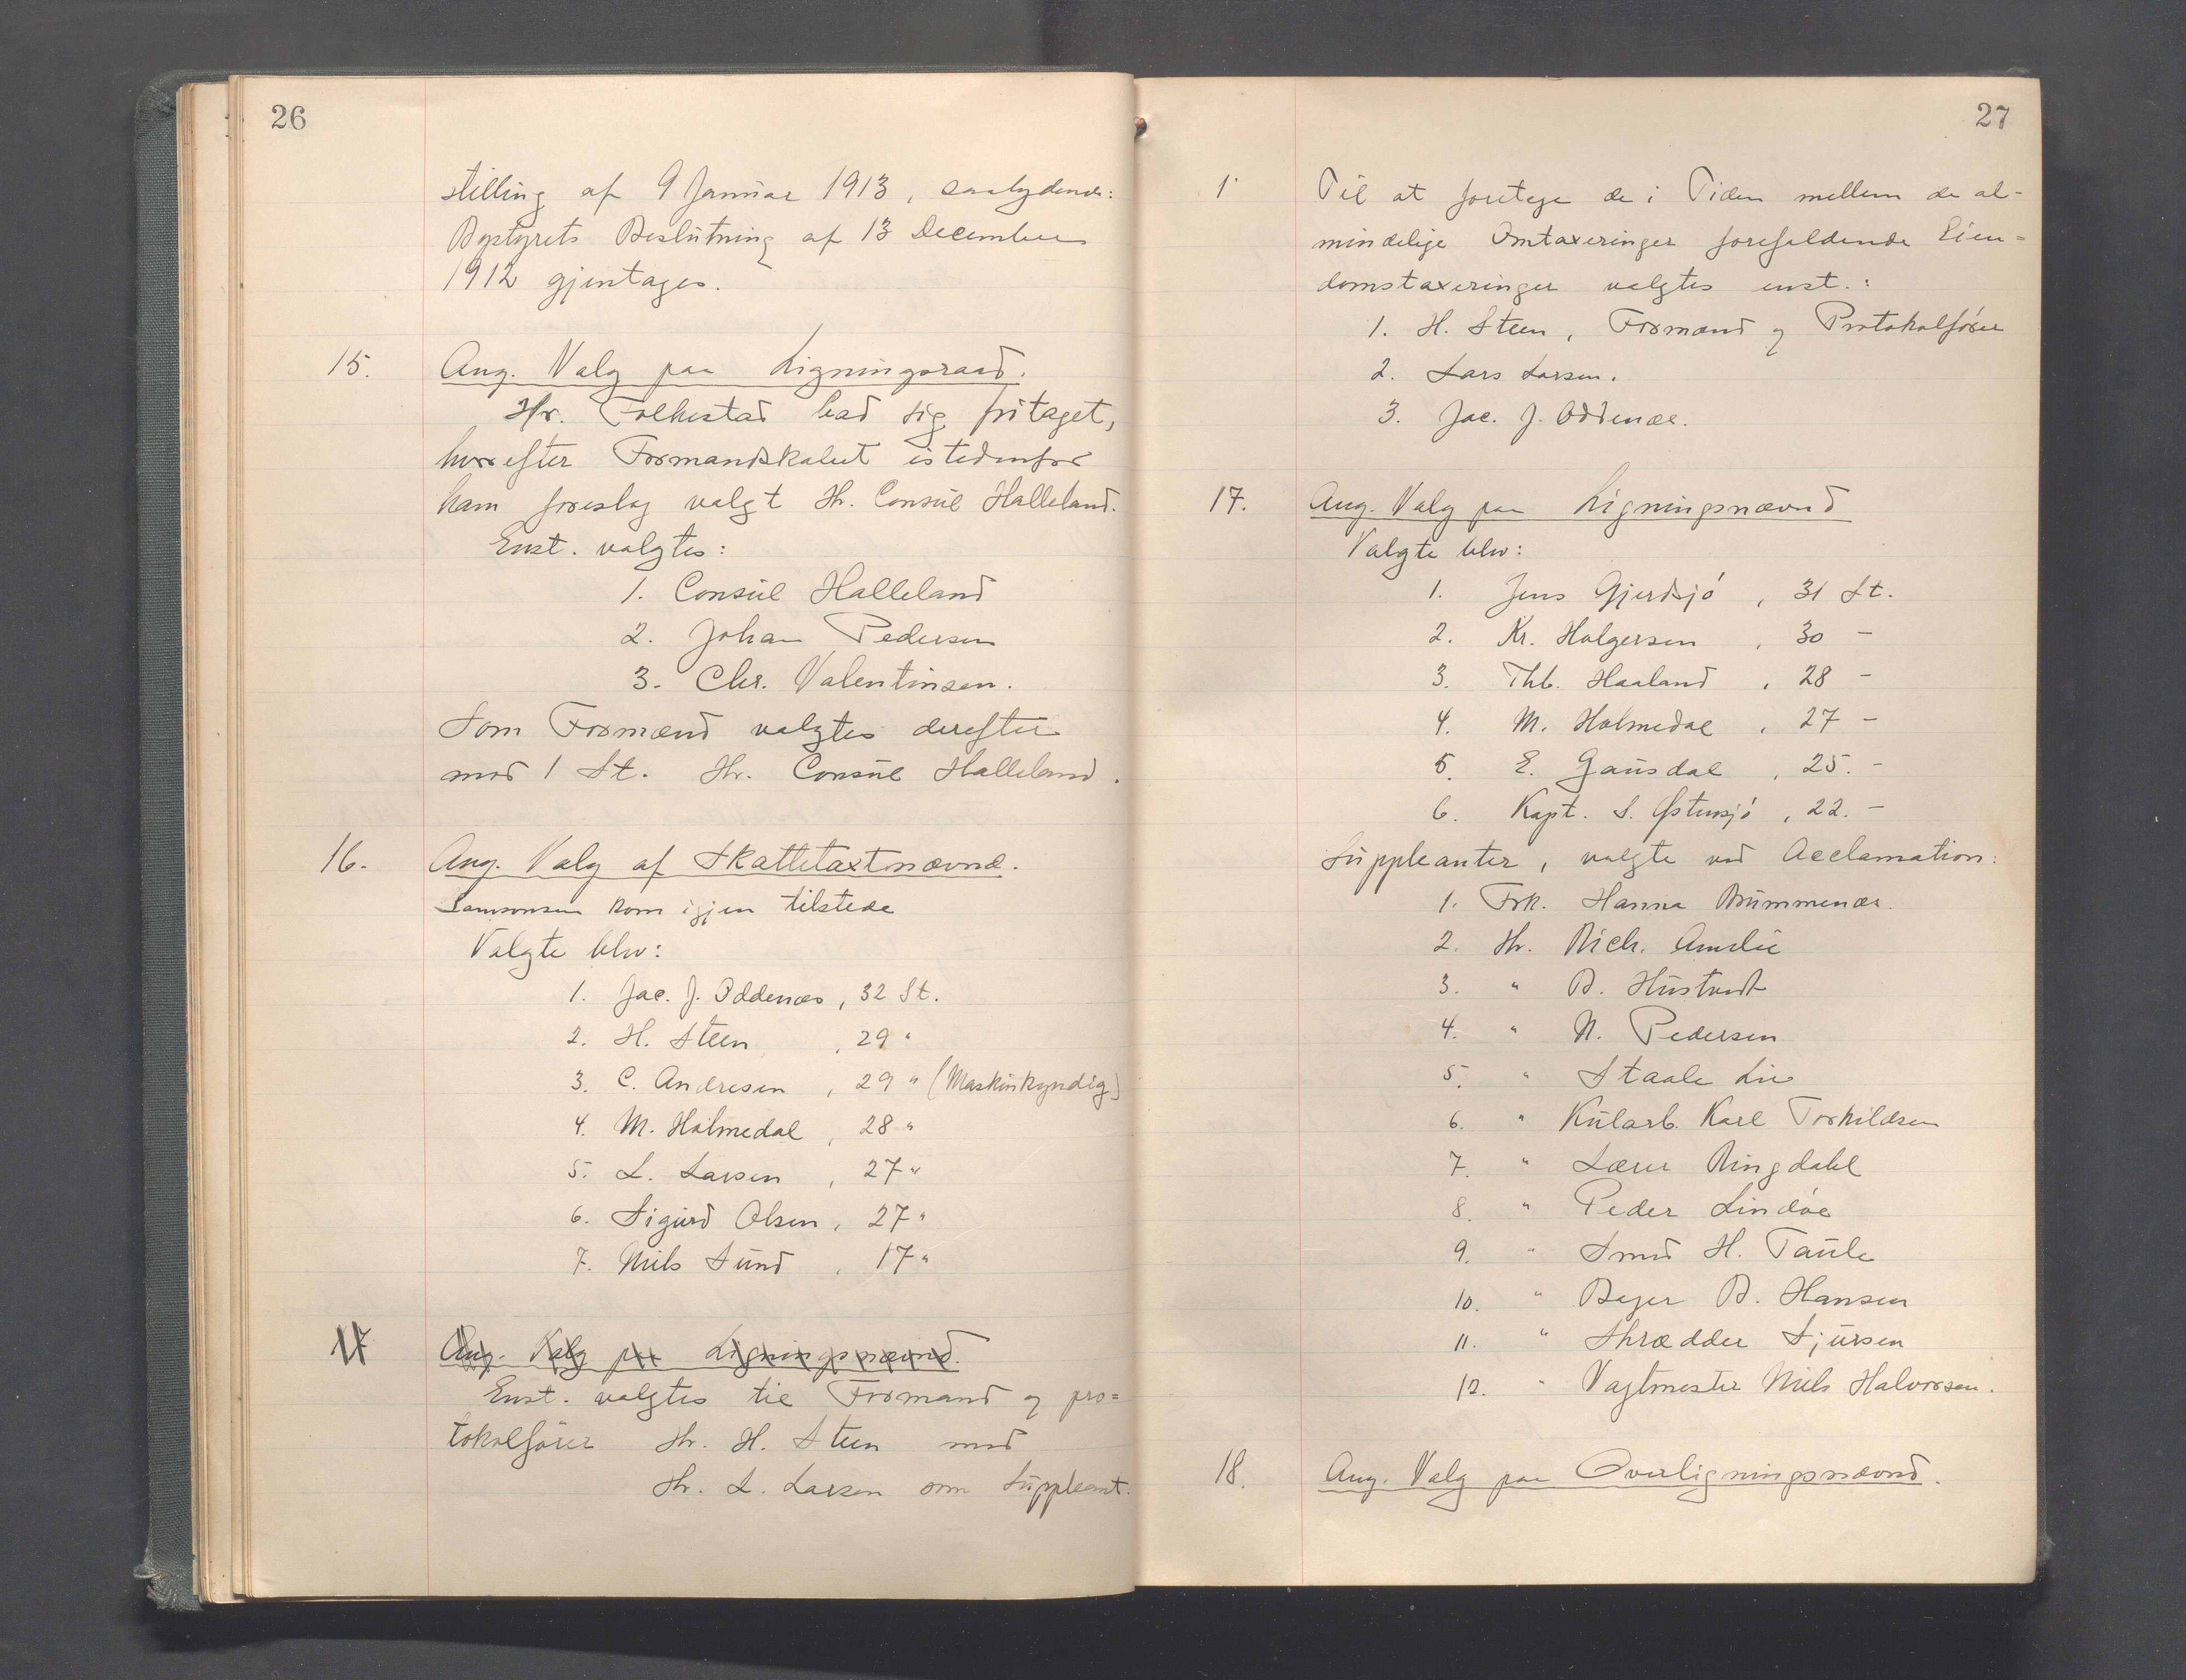 26
stilling af 9 Januar 1913, saalydende:
Bystyrets Beslutning af 13 December
1912 gjentages.
15. Ang. Valg paa Ligningsraad.
Hr. Folkestad bad sig fritaget,
hvorefter Formandskabet istedenfor
ham foreslog valgt Hr. Consul Halleland.
Enst. valgtes:
1. Consul Halleland
2. Johan Pedersen
3. Chr. Valentinsen.
Som Formand valgtes derefter
med 1 St. Hr. Consul Halleland.
16. Ang. Valg af Skattetaxtnævnd.
Samsonsen kom igjen tilstede
Valgte blev:
1. Jac. J. Oddenæs, 32 St.
2. H. Steen, 29 "
3. C. Andresen, 29 " (Maskinkyndig)
4. M. Holmedal, 28 "
5. L. Larsen, 27 "
6. Sigurd Olsen, 27 "
7. Nils Sund, 17 "
17 Ang. Valg paa Ligningsnævnd.
Enst. valgtes til Formand og pro=
tokolfører Hr. H. Steen med
Hr. L. Larsen som Suppleant.
27
1 Til at foretage de i Tiden mellem de al-
mindelige Omtaxeringer forefaldende Eien=
domstaxeringer valgtes enst.:
1. H. Steen, Formand og Protokolfører
2. Lars Larsen.
3. Jac. J. Oddenæs.
17. Ang. Valg paa Ligningsnævnd
Valgte blev:
1. Jens Gjerdsjó, 31 St.
2. Kr. Holgersen, 30 –
3. Thb. Haaland, 28 –
4. M. Holmedal, 27 –
5. E. Gausdal, 25. –
6. Kapt. S. Østensjó, 22. –
Suppleanter, valgte ved Acclamation:
1. Frk. Hanna Brummenæs.
2. Hr. Rich. Amelie
3. " B. Hustvedt
4. " N. Pedersen
5. " Staale Lie
6. " Kularb. Karl Torkildsen
7. " Lærer Ringdahl
8. " Peder Lindøe
9. " Smed H. Taule
10. " Bager B. Hansen
11. " Skrædder Sjursen
12. " Vagtmester Nils Halvorsen.
18. Ang. Valg paa Overligningsnævnd.